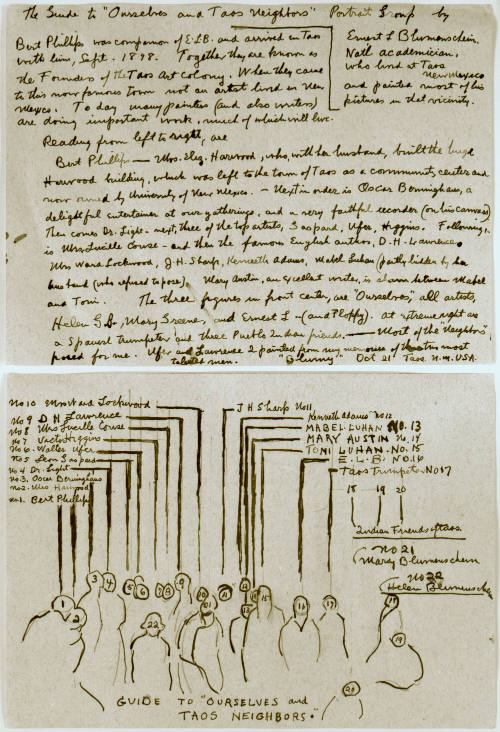 The Guide to "Ourselves and Taos Neighbors" Portrait Group by
Ernest L Blumenschein.
Natl academician,
who lived at Taos
New Mexico
and painted most of his
pictures in that vicinity.
Bert Phillips was companion of E.L.B. and arrived in Taos
with him, Sept. 1898. Together they are known as
the Founders of the Taos Art Colony. When they came
to this now famous town not an artist lived in New
Mexico. To day many painters (and also writers)
are doing important work, much of which will live.
Reading from left to right, are
Bert Phillips — Mrs. Eliz. Harwood, who, with her husband, built the huge
Harwood building, which was left to the town of Taos as a community center and
now owned by University of New Mexico. — Next in order is Oscar Berninghaus, a
delightful entertainer at our gatherings, and a very faithful recorder (on his canvas)
Then comes Dr. Light - next, three of the top artists, Gaspard, Ufer, Higgins. Following,
is Mrs. Lucille Couse - and then the famous English author, D.H. Lawrence.
Mrs Ward Lockwood, J.H. Sharp, Kenneth Adams, Mabel Luhan (partly hidden by her
husband (who refused to pose). Mary Austin, an excellent writer, is shown between Mabel
and Toni. The three figures in front center, are "Ourselves," all artists,
Helen G.B., Mary Greene, and Ernest L - (and Ploppy). At extreme right are
a Spanish trumpeter and three Pueblo Indian friends. — Most of the "Neighbors"
posed for me. Ufer and Lawrence I painted from my memories of the two most
talented men. "Blumy" Oct 21 Taos. N.M. USA.
No 10 Mrs Ward Lockwood
No 9 D H Lawrence
No 8 Mrs Lucille Couse
No 7 Victor Higgins
No 6. Walter Ufer
No 5 Leon Gaspard
No 4 Dr. Light
No. 3. Oscar Berninghaus
No 2. Mrs Harwood
No 1. Bert Phillips
J H Sharp No 11
Kenneth Adams No 12
MABEL LUHAN NO. 13
MARY AUSTIN No. 14
TONI LUHAN. No. 15
E. L. B. No. 16
Taos Trumpeter No 17
18 19 20
Indian Friends of Taos.
No 21
Mary Blumenschein
No 22
Helen Blumenschein
1
2
3
4
5
6
7
8
9
10
21
11
12
13
14
15
16
17
22
18
19
20
GUIDE TO "OURSELVES and
TAOS NEIGHBORS."